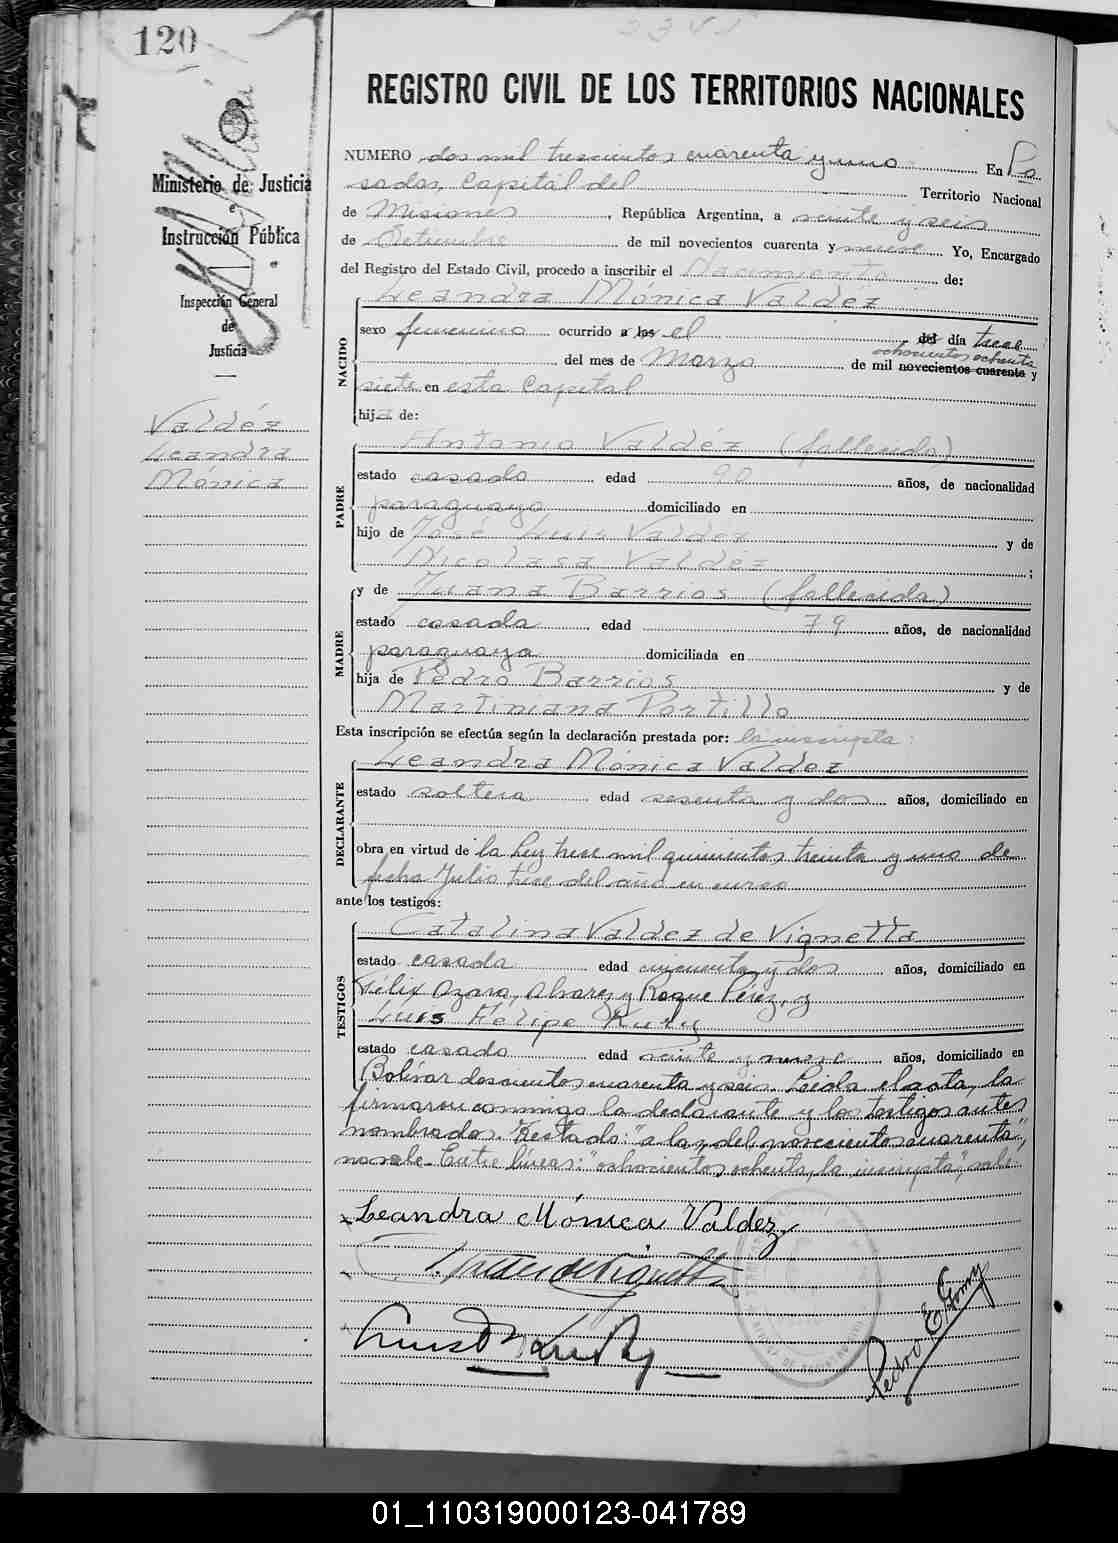 120
REGISTRO CIVIL DE LOS TERRITORIOS NACIONALES
Ministerio de Justicia
e
Instrucción Pública
Inspección General
de
Justicia
Valdéz
Leandra
Mónica
NUMERO dos mil trescientos cuarenta y uno En Po
sadas, Capital del Territorio Nacional
de Misiones, República Argentina, a veinte y seis
de Setiembre de mil novecientos cuarenta y nueve Yo, Encargado
del Registro del Estado Civil, procedo a inscribir el Nacimiento de:
NACIDO
Leandra Mónica Valdéz
sexo femenino ocurrido a los el del día trece
ochocientos ochenta
del mes de Marzo de mil novecientos cuarenta y
siete en esta Capital
hija de:
PADRE
Antonio Valdéz (fallecido)
estado casado edad 90 años, de nacionalidad
paraguayo domiciliado en
hijo de José Luis Valdez y de
Nicolasa Valdéz ;
MADRE
y de Juana Barrios (fallecida)
estado casada edad 79 años, de nacionalidad
paraguaya domiciliada en
hija de Pedro Barrios y de
Martiniana Portillo
Esta inscripción se efectúa según la declaración prestada por: la inscripta:
DECLARANTE
Leandra Mónica Valdez
estado soltera edad sesenta y dos años, domiciliado en
obra en virtud de la Ley trece mil quinientos treinta y uno de
fecha Julio trece del año en curso
ante los testigos:
TESTIGOS
Catalina Valdez de Vignetta
estado casada edad cincuenta y dos años, domiciliado en
Félix Azara, Alvarez y Roque Pérez, y
Luis Felipe Kury
estado casado edad veinte y nueve años, domiciliado en
Bolívar doscientos cuarenta y seis. Leida el acta, la
firmaron conmigo la declarante y los testigos antes
nombrados. Testado: "a los, del, novecientos cuarenta",
no vale. Entre lineas: "ochocientos ochenta, la inscripta", vale.
Leandra Mónica Valdez
Pedro E.
01_110319000123-041789